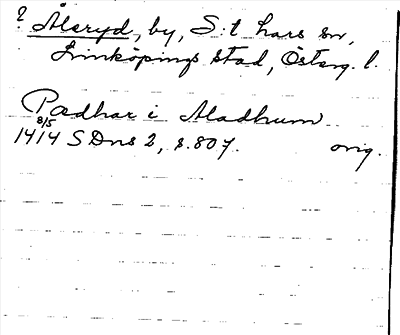 ? Ålaryd, by, S:t Lars sn,
Linköpings stad, Österg. l.
Pædhar i Aladhum
8/5
1414 SDns 2, s. 807. orig.